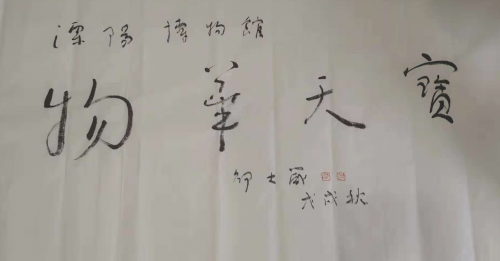 溧陽博物館
物華天寶
邵大箴
戊戌秋